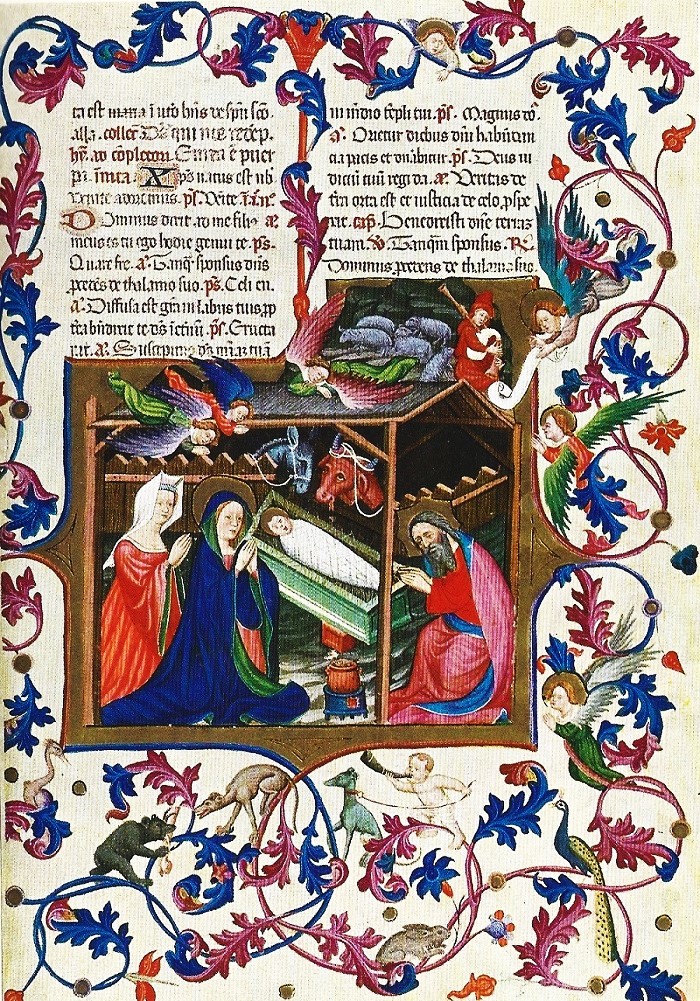 ta est maria i utō hñs de spū scō
alla. collec. Ds qui nre redep
ad cōpletor. puer
īuita. Xps natus est nb
Venite adoremus. ps. Veite.
Dominus dixit ad me filiꝰ
meus es tu ego hodie genui te. ps.
Quare fre. a. Tanq̄ sponsus dn̄s
p̄cedēs de thalamo suo. ps. Celi en.
a. Diffusa est grā in labiis tuis pp
tea bn̄dixit te ds ī etnū. ps. Eructa
uit. a. Suscepimꝰ ds miaꝫ tuā
in medio tēpli tui. ps. Magnus dō.
a. Orietur diebus dn̄i habundan
cia pacis et dn̄abitur. ps. Deus iu
diciū tuū regi da. a. Veritas de
tr̄a orta est et iusticia de celo. pspe
xit. ps. Benedixisti dn̄e terrā
tuam. V. Tamqm̄ sponsus. R.
Dominus p̄cedens de thalamo suo.